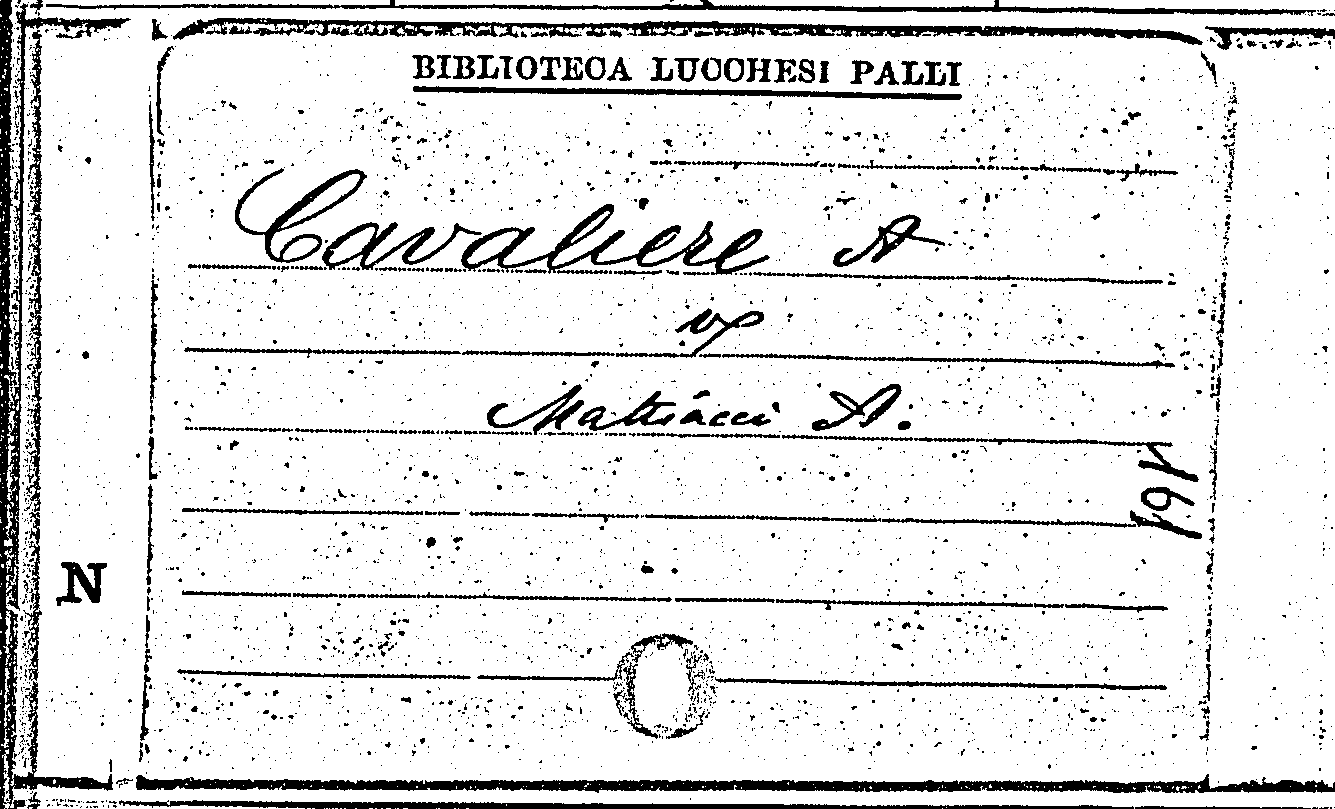 BIBLIOTECA LUCCHESI PALLI
Cavaliere A
Mattiacci A.
161
N